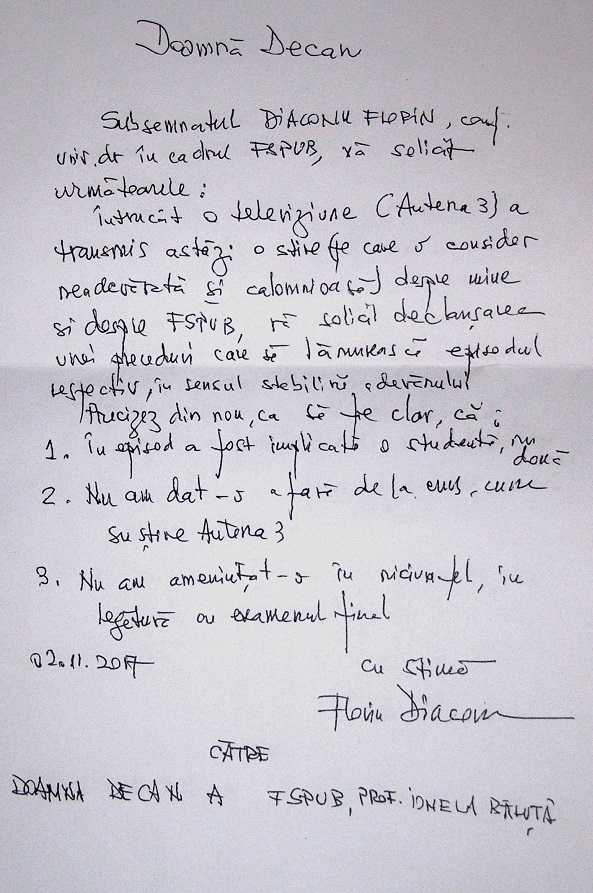 Doamnă Decan
Subsemnatul DIACONU FLORIN, conf.
univ. dr în cadrul FSPUB, vă solicit
următoarele:
Întrucât o televiziune (Antena 3) a
transmis astăzi o știre (pe care o consider
neadevărată și calomnioasă) despre mine
și despre FSPUB, vă solicit declanșarea
unei proceduri care să lămurească episodul
respectiv, în sensul stabilirii adevărului
Precizez din nou, ca să fie clar, că:
1. În episod a fost implicată o studentă, nu
două
2. Nu am dat-o afară de la curs, cum
susține Antena 3
3. Nu am amenințat-o în niciun fel, în
legătură cu examenul final
02.11.2017
cu stimă
Florin Diaconu
CĂTRE
DOAMNA DECAN A FSPUB, PROF. IONELA BĂLUȚĂ